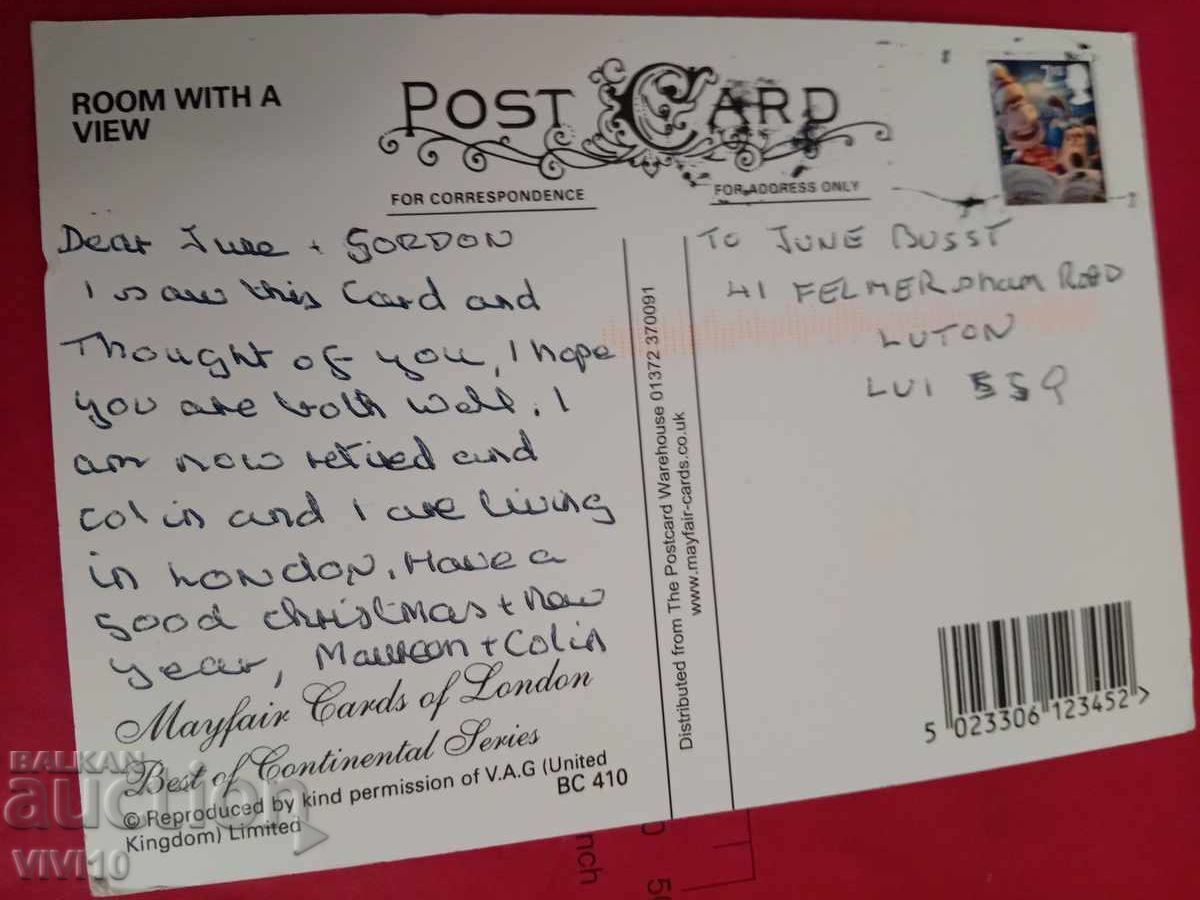 ROOM WITH A
VIEW
POST CARD
FOR CORRESPONDENCE
FOR ADDRESS ONLY
2nd
Dear June + GORDON
I saw this Card and
Thought of you, I hope
you are both well. I
am now retired and
Colin and I are living
in London. Have a
good christmas + New
year, Maureen + Colin
TO JUNE BUSST
41 FELMERSham ROAD
LUTON
LU1 5SQ
Distributed from The Postcard Warehouse 01372 370091
www.mayfair-cards.co.uk
Mayfair Cards of London
Best of Continental Series
© Reproduced by kind permission of V.A.G (United
Kingdom) Limited
BC 410
5 023306 123452 >
nch
BALKAN
auction
VIVI10